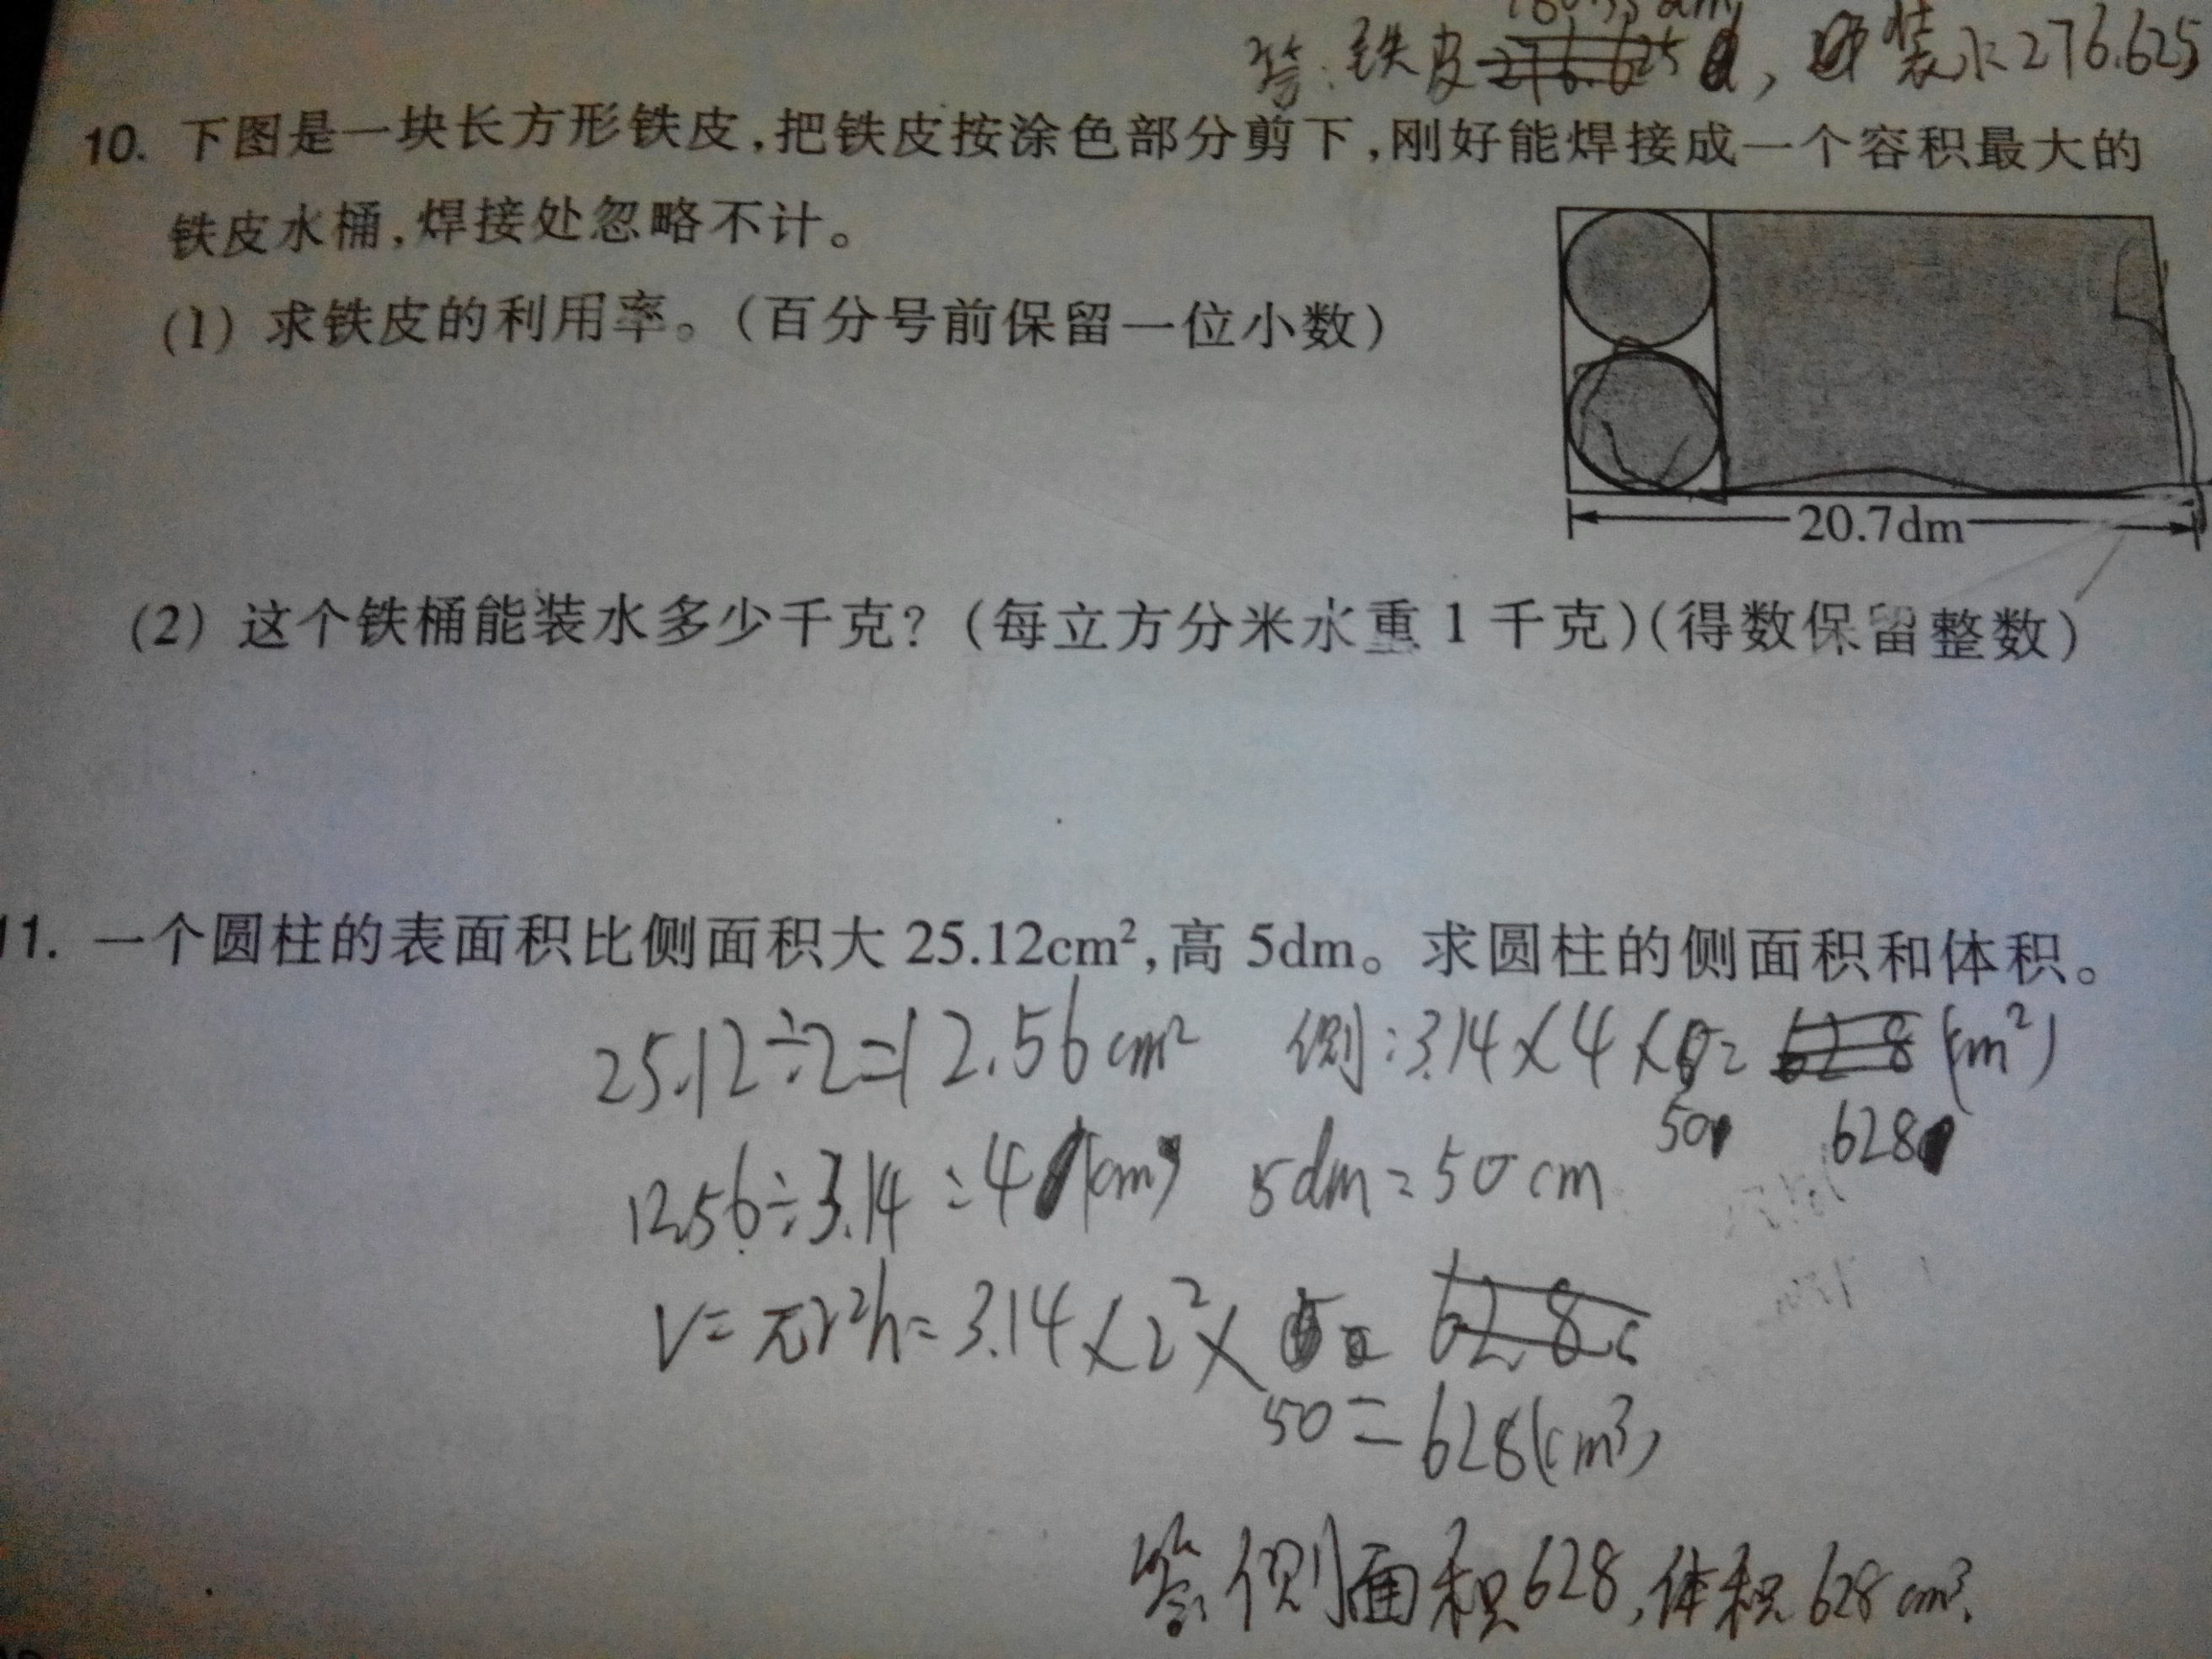 答:铁皮 , 装水276.625
10. 下图是一块长方形铁皮,把铁皮按涂色部分剪下,刚好能焊接成一个容积最大的
铁皮水桶,焊接处忽略不计。
(1) 求铁皮的利用率。(百分号前保留一位小数)
20.7dm
(2) 这个铁桶能装水多少千克?(每立方分米水重1千克)(得数保留整数)
11. 一个圆柱的表面积比侧面积大25.12cm²,高5dm。求圆柱的侧面积和体积。
25.12÷2=12.56cm² 侧:3.14×4× = (cm²)
50 628
12.56÷3.14=4(cm) 5dm=50cm
V=πr²h=3.14×2²× = 62.8
50=628(cm³)
答:侧面积628,体积628cm³.